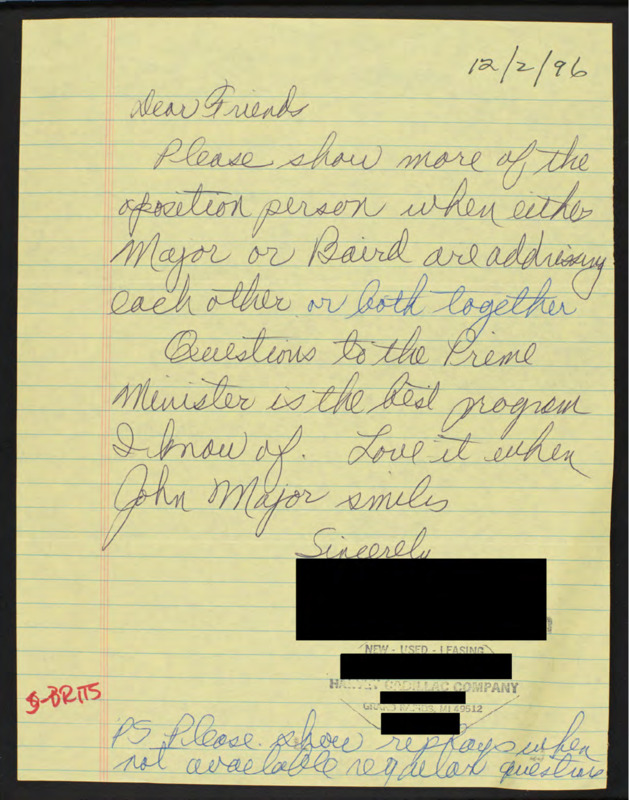 12/2/96
Dear Friends
Please show more of the
oposition person when either
Major or Baird are addressing
each other or both together
Questions to the Prime
Minister is the best program
I know of. Love it when
John Major smiles
Sincerely
NEW - USED - LEASING
CADILLAC COMPANY
RAPIDS, MI 49512
BRITS
PS Please show replays when
not available regular questions